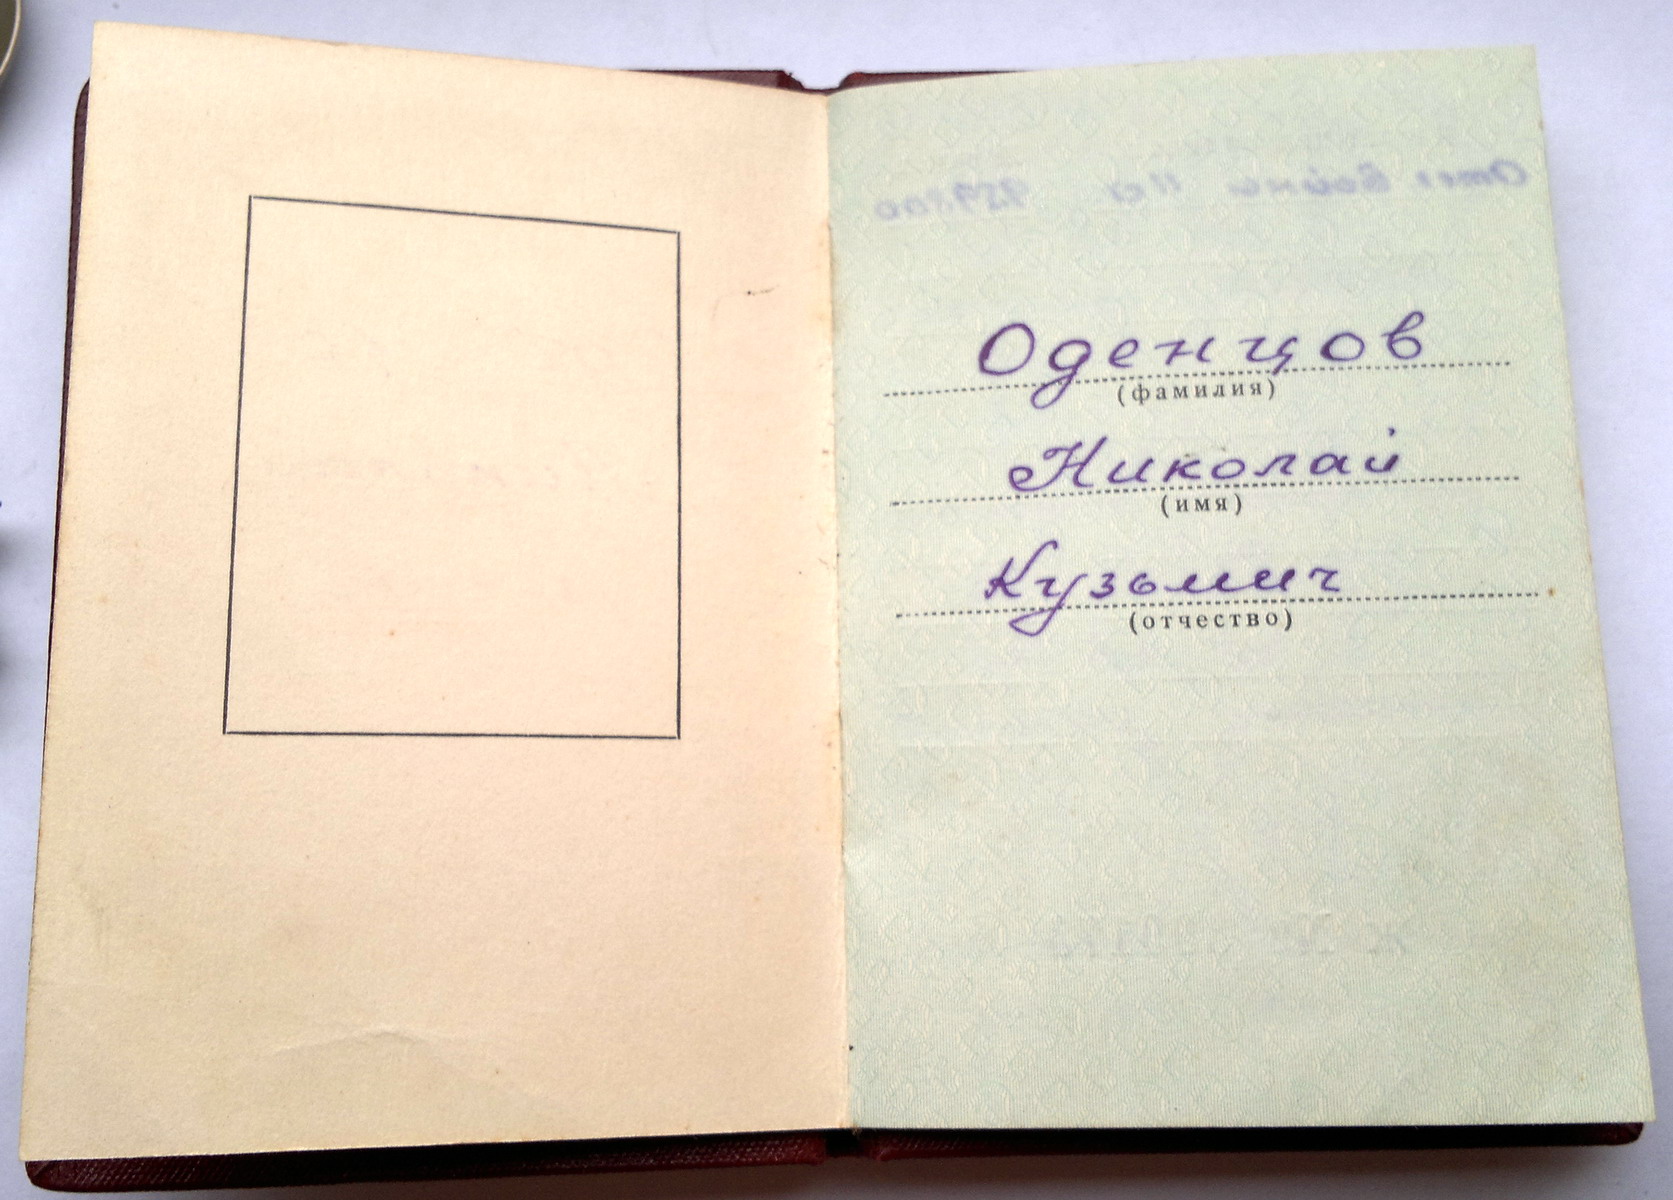 Оденцов
(фамилия)
Николай
(имя)
Кузьмич
(отчество)